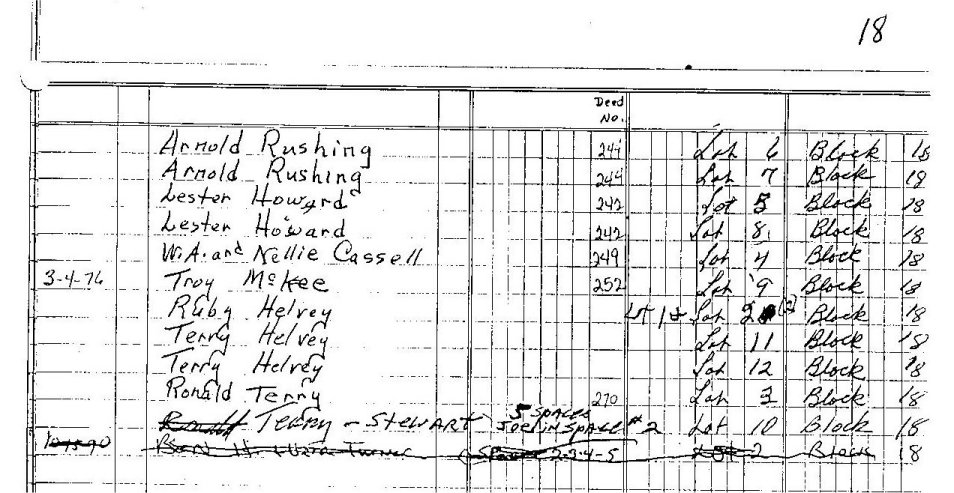 18
Deed
No.
Arnold Rushing 244 Lot 6 Block 18
Arnold Rushing 244 Lot 7 Block 18
Lester Howard 242 Lot 5 Block 18
Lester Howard 242 Lot 8 Block 18
W.A. and Nellie Cassell 249 Lot 4 Block 18
3-4-76 Troy McKee 252 Lot 9 Block 18
Ruby Helvey Lot 1 & Lot 2 (2) Block 18
Terry Helvey Lot 11 Block 18
Terry Helvey Lot 12 Block 18
Ronald Terry 270 Lot 3 Block 18
5 SPACES
Ronald Terry - STEWART JOE IN SPACE #2 Lot 10 Block 18
2-3-4-5 Lot 2 Block 18